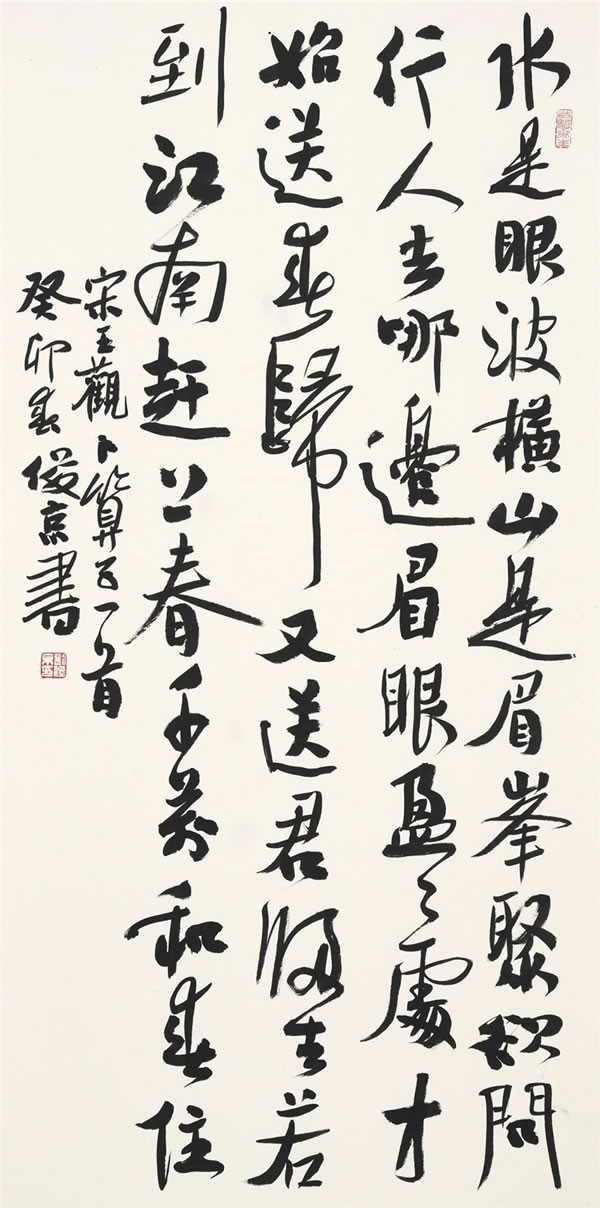 水是眼波橫山是眉峯聚欲問
行人去哪邊眉眼盈〻處才
始送春歸又送君歸去若
到江南趕上春千萬和春住
宋王觀卜算子一首
癸卯春俊京書